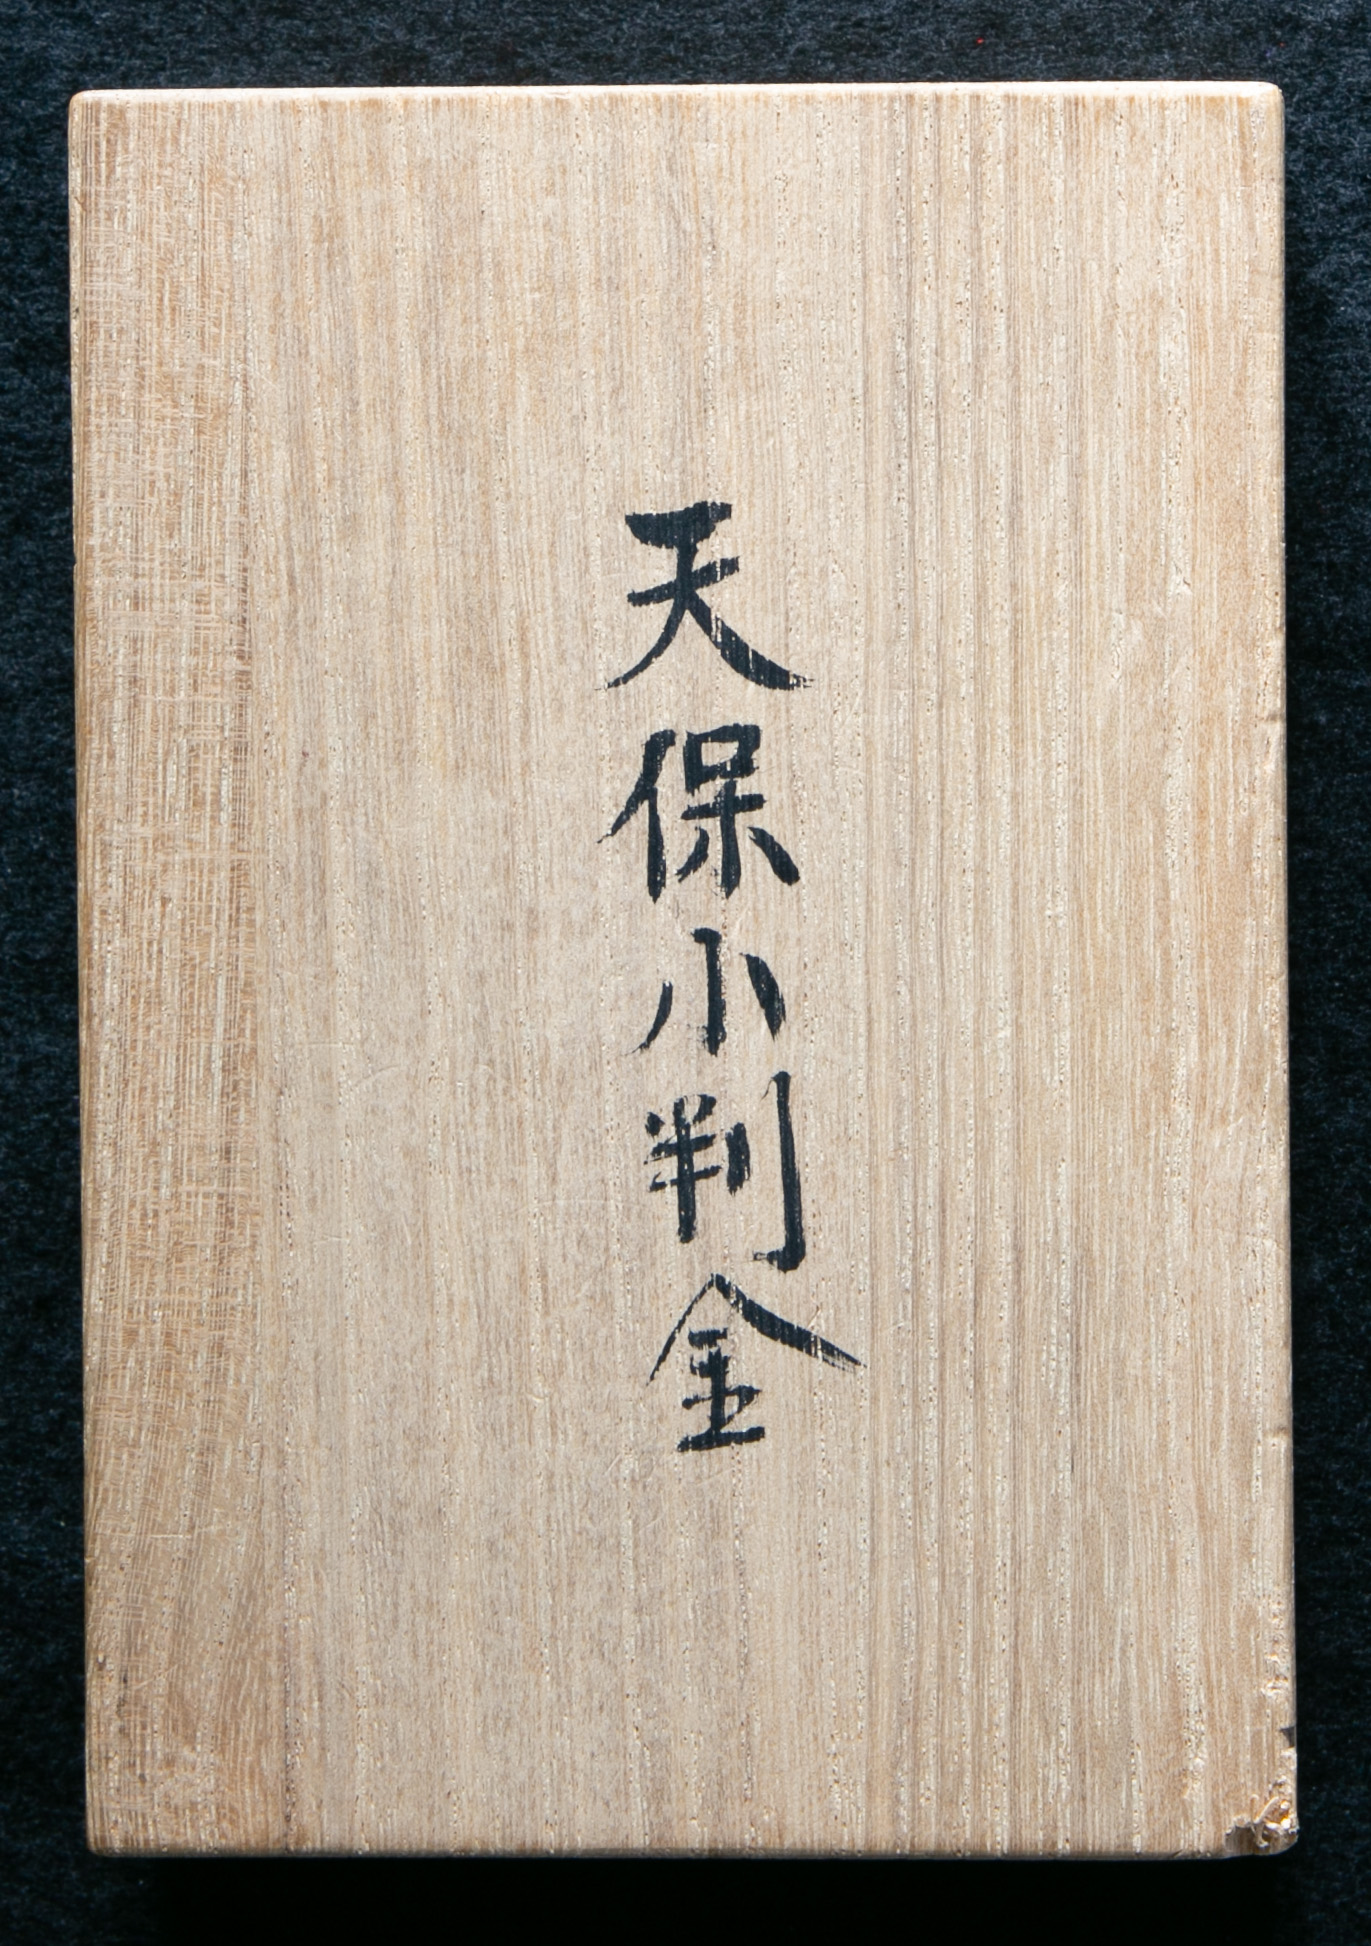 天保小判金